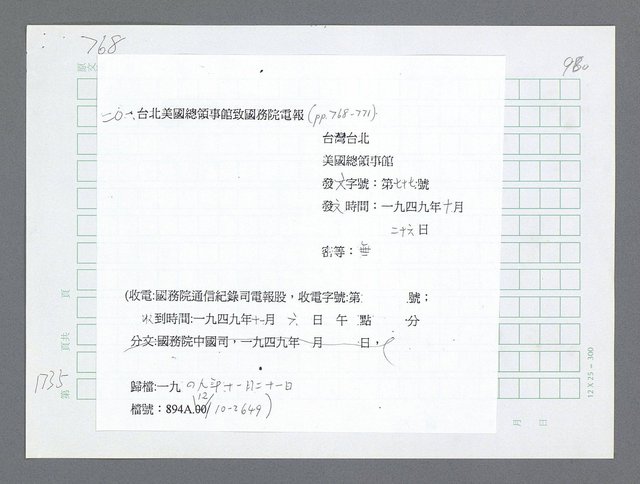 768
980
原文
二〇一、台北美國總領事館致國務院電報(pp.768-771)
台灣台北
美國總領事館
發文字號：第七十七號
發文時間：一九四九年十月
二十六日
密等：無
(收電:國務院通信紀錄司電報股，收電字號:第 號；
收到時間:一九四九年十一月 六 日 午 點 分
分文:國務院中國司，一九四九年 月 日，
歸檔:一九四九年十一月二十一日
檔號：894A.00/10-2649)
12
頁
頁共
第
1735
12 X 25 = 300
月 日